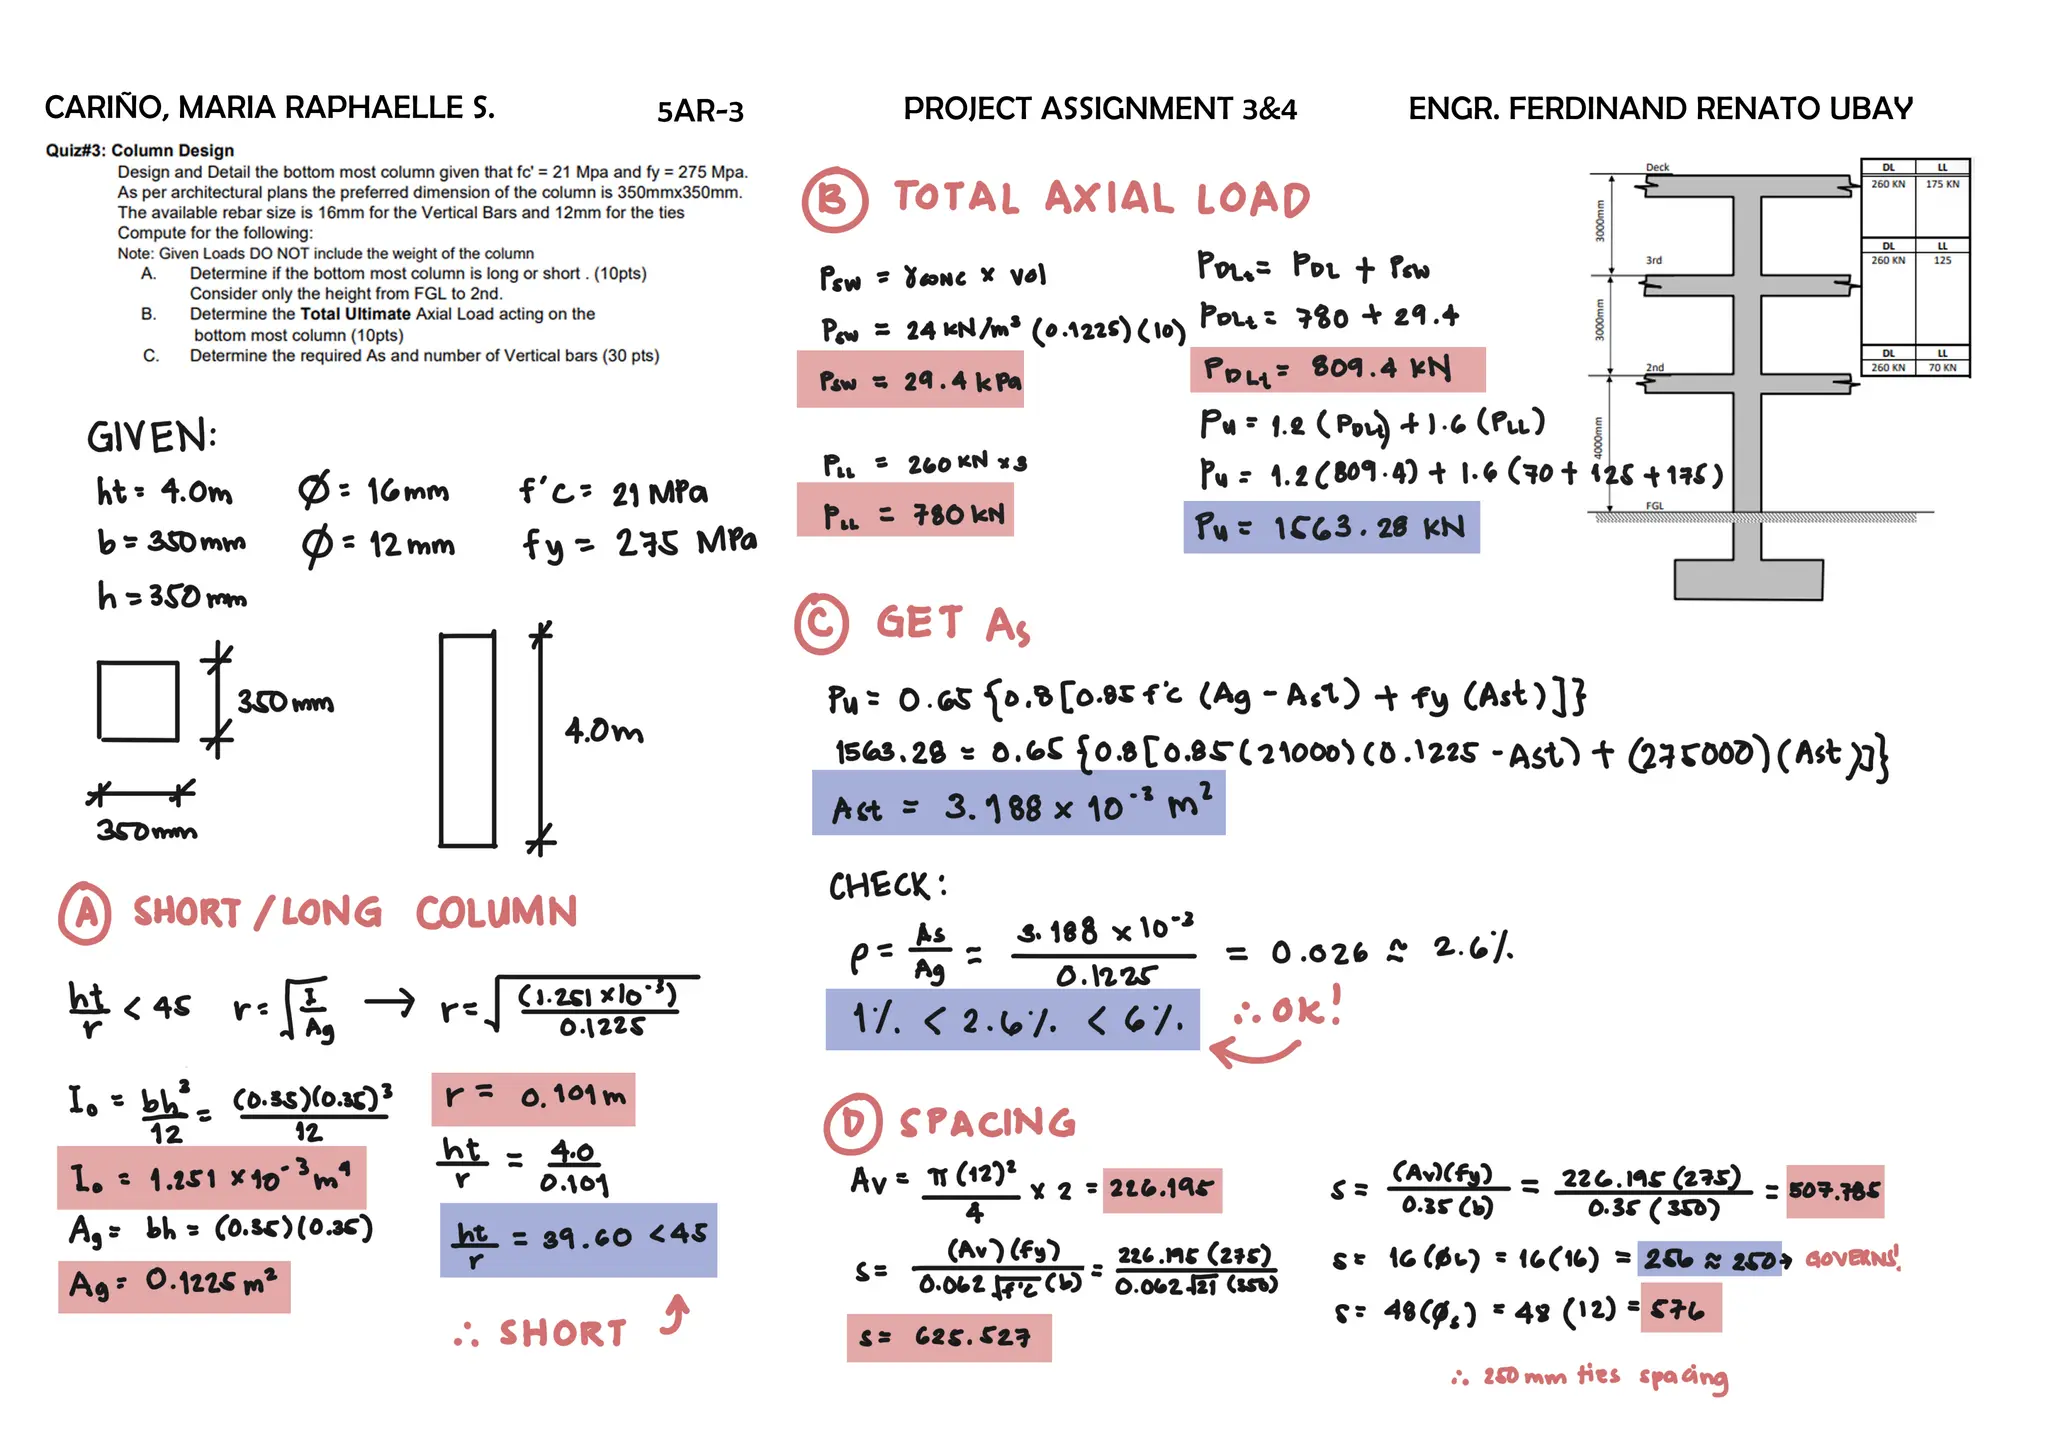 CARIÑO, MARIA RAPHAELLE S. 5AR-3 PROJECT ASSIGNMENT 3&4 ENGR. FERDINAND RENATO UBAY
Quiz#3: Column Design
Design and Detail the bottom most column given that fc' = 21 Mpa and fy = 275 Mpa.
As per architectural plans the preferred dimension of the column is 350mmx350mm.
The available rebar size is 16mm for the Vertical Bars and 12mm for the ties
Compute for the following:
Note: Given Loads DO NOT include the weight of the column
A. Determine if the bottom most column is long or short . (10pts)
Consider only the height from FGL to 2nd.
B. Determine the Total Ultimate Axial Load acting on the
bottom most column (10pts)
C. Determine the required As and number of Vertical bars (30 pts)
GIVEN:
ht = 4.0m Ø = 16mm f'c = 21 MPa
b = 350mm Ø = 12mm fy = 275 MPa
h = 350mm
350mm
350mm
4.0m
Ⓐ SHORT / LONG COLUMN
ht/r < 45 r = √(I/Ag) → r = √((1.251 x 10⁻³)/0.1225)
I₀ = bh³/12 = (0.35)(0.35)³/12
I₀ = 1.251 x 10⁻³ m⁴
Ag = bh = (0.35)(0.35)
Ag = 0.1225 m²
r = 0.101m
ht/r = 4.0/0.101
ht/r = 39.60 < 45
∴ SHORT
Ⓑ TOTAL AXIAL LOAD
Psw = γconc x vol
Psw = 24 kN/m³ (0.1225)(10)
Psw = 29.4 kPa
PLL = 260 KN x 3
PLL = 780 kN
PDLt = PDL + Psw
PDLt = 780 + 29.4
PDLt = 809.4 kN
Pu = 1.2 (PDLt) + 1.6 (PLL)
Pu = 1.2 (809.4) + 1.6 (70 + 125 + 175)
Pu = 1563.28 kN
Deck
3000mm
3rd
3000mm
2nd
4000mm
FGL
DL LL
260 KN 175 KN
DL LL
260 KN 125
DL LL
260 KN 70 KN
Ⓒ GET As
Pu = 0.65 {0.8 [0.85 f'c (Ag - Ast) + fy (Ast)]}
1563.28 = 0.65 {0.8 [0.85 (21000)(0.1225 - Ast) + (275000)(Ast)]}
Ast = 3.188 x 10⁻³ m²
CHECK:
ρ = As/Ag = 3.188 x 10⁻³/0.1225 = 0.026 ≈ 2.6%
1% < 2.6% < 6% ∴ OK!
Ⓓ SPACING
Av = π(12)²/4 x 2 = 226.195
s = (Av)(fy)/0.062 √f'c (b) = 226.195 (275)/0.062 √21 (350)
s = 625.527
s = (Av)(fy)/0.35 (b) = 226.195 (275)/0.35 (350) = 507.785
s = 16 (ØL) = 16 (16) = 256 ≈ 250 → GOVERNS!
s = 48 (Øs) = 48 (12) = 576
∴ 250mm ties spacing